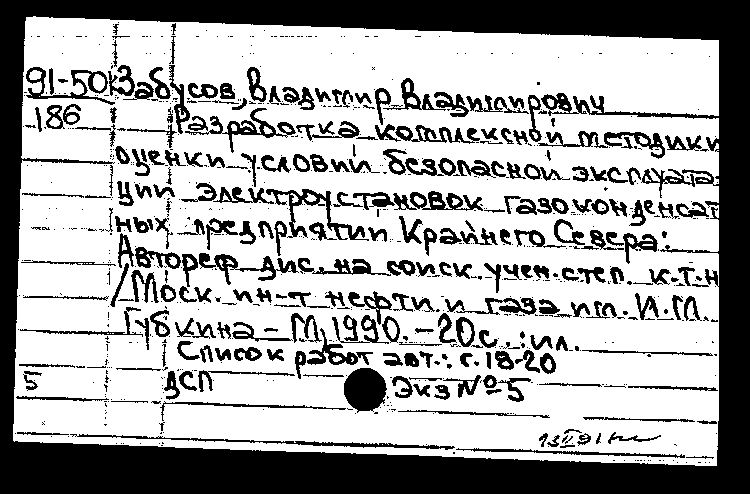 91-50к Забусов, Владимир Владимирович
186 Разработка комплексной методики
оценки условий безопасной эксплуата-
ции электроустановок газоконденсат
ных предприятий Крайнего Севера:
Автореф дис. на соиск. учен. степ. к.т.н
/Моск. ин-т нефти и газа им. И.М.
Губкина - М, 1990. - 20с. : ил.
Список работ авт.: с. 18-20
5 ДСП Экз №5